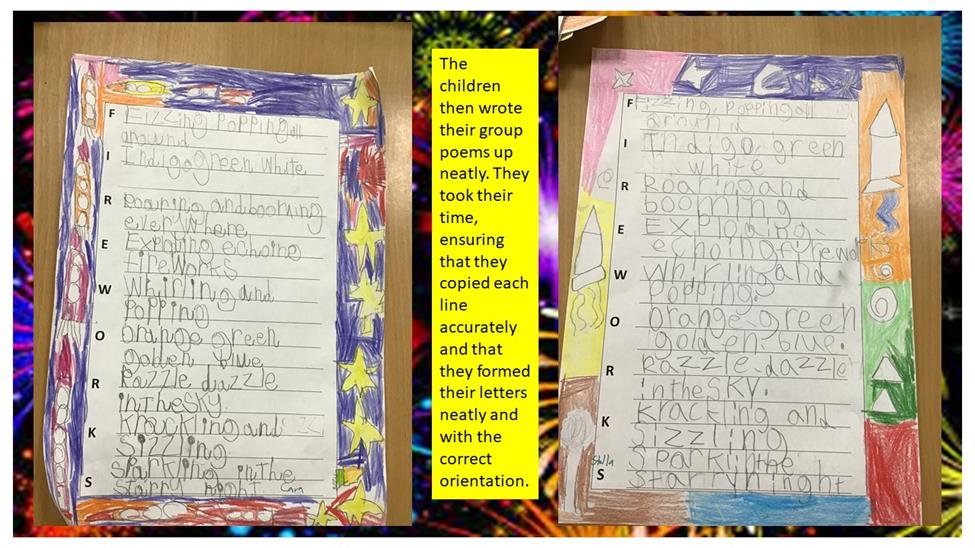 F
I
R
E
W
O
R
K
S
Fizzing Popping all
around
Indigo Green White
Roaring and booming
everywhere
echoing
fireworks
Whirling and
Popping
orange green
golden blue
Razzle dazzle
inthe SKY.
Krackling and
Sizzling
Sparkling inthe
starry night
The
children
then wrote
their group
poems up
neatly. They
took their
time,
ensuring
that they
copied each
line
accurately
and that
they formed
their letters
neatly and
with the
correct
orientation.
F
I
R
E
W
O
R
K
S
Fizzing, popping all
around
Indigo, green
white
Roaring and
booming
Exploding-
echoing fireworks
whirling and
Popping.
orange-green
golden-blue.
Razzle-dazzle
intheSKY.
Krackling and
Sizzling
Stella
Sparklinthe
starryhinght